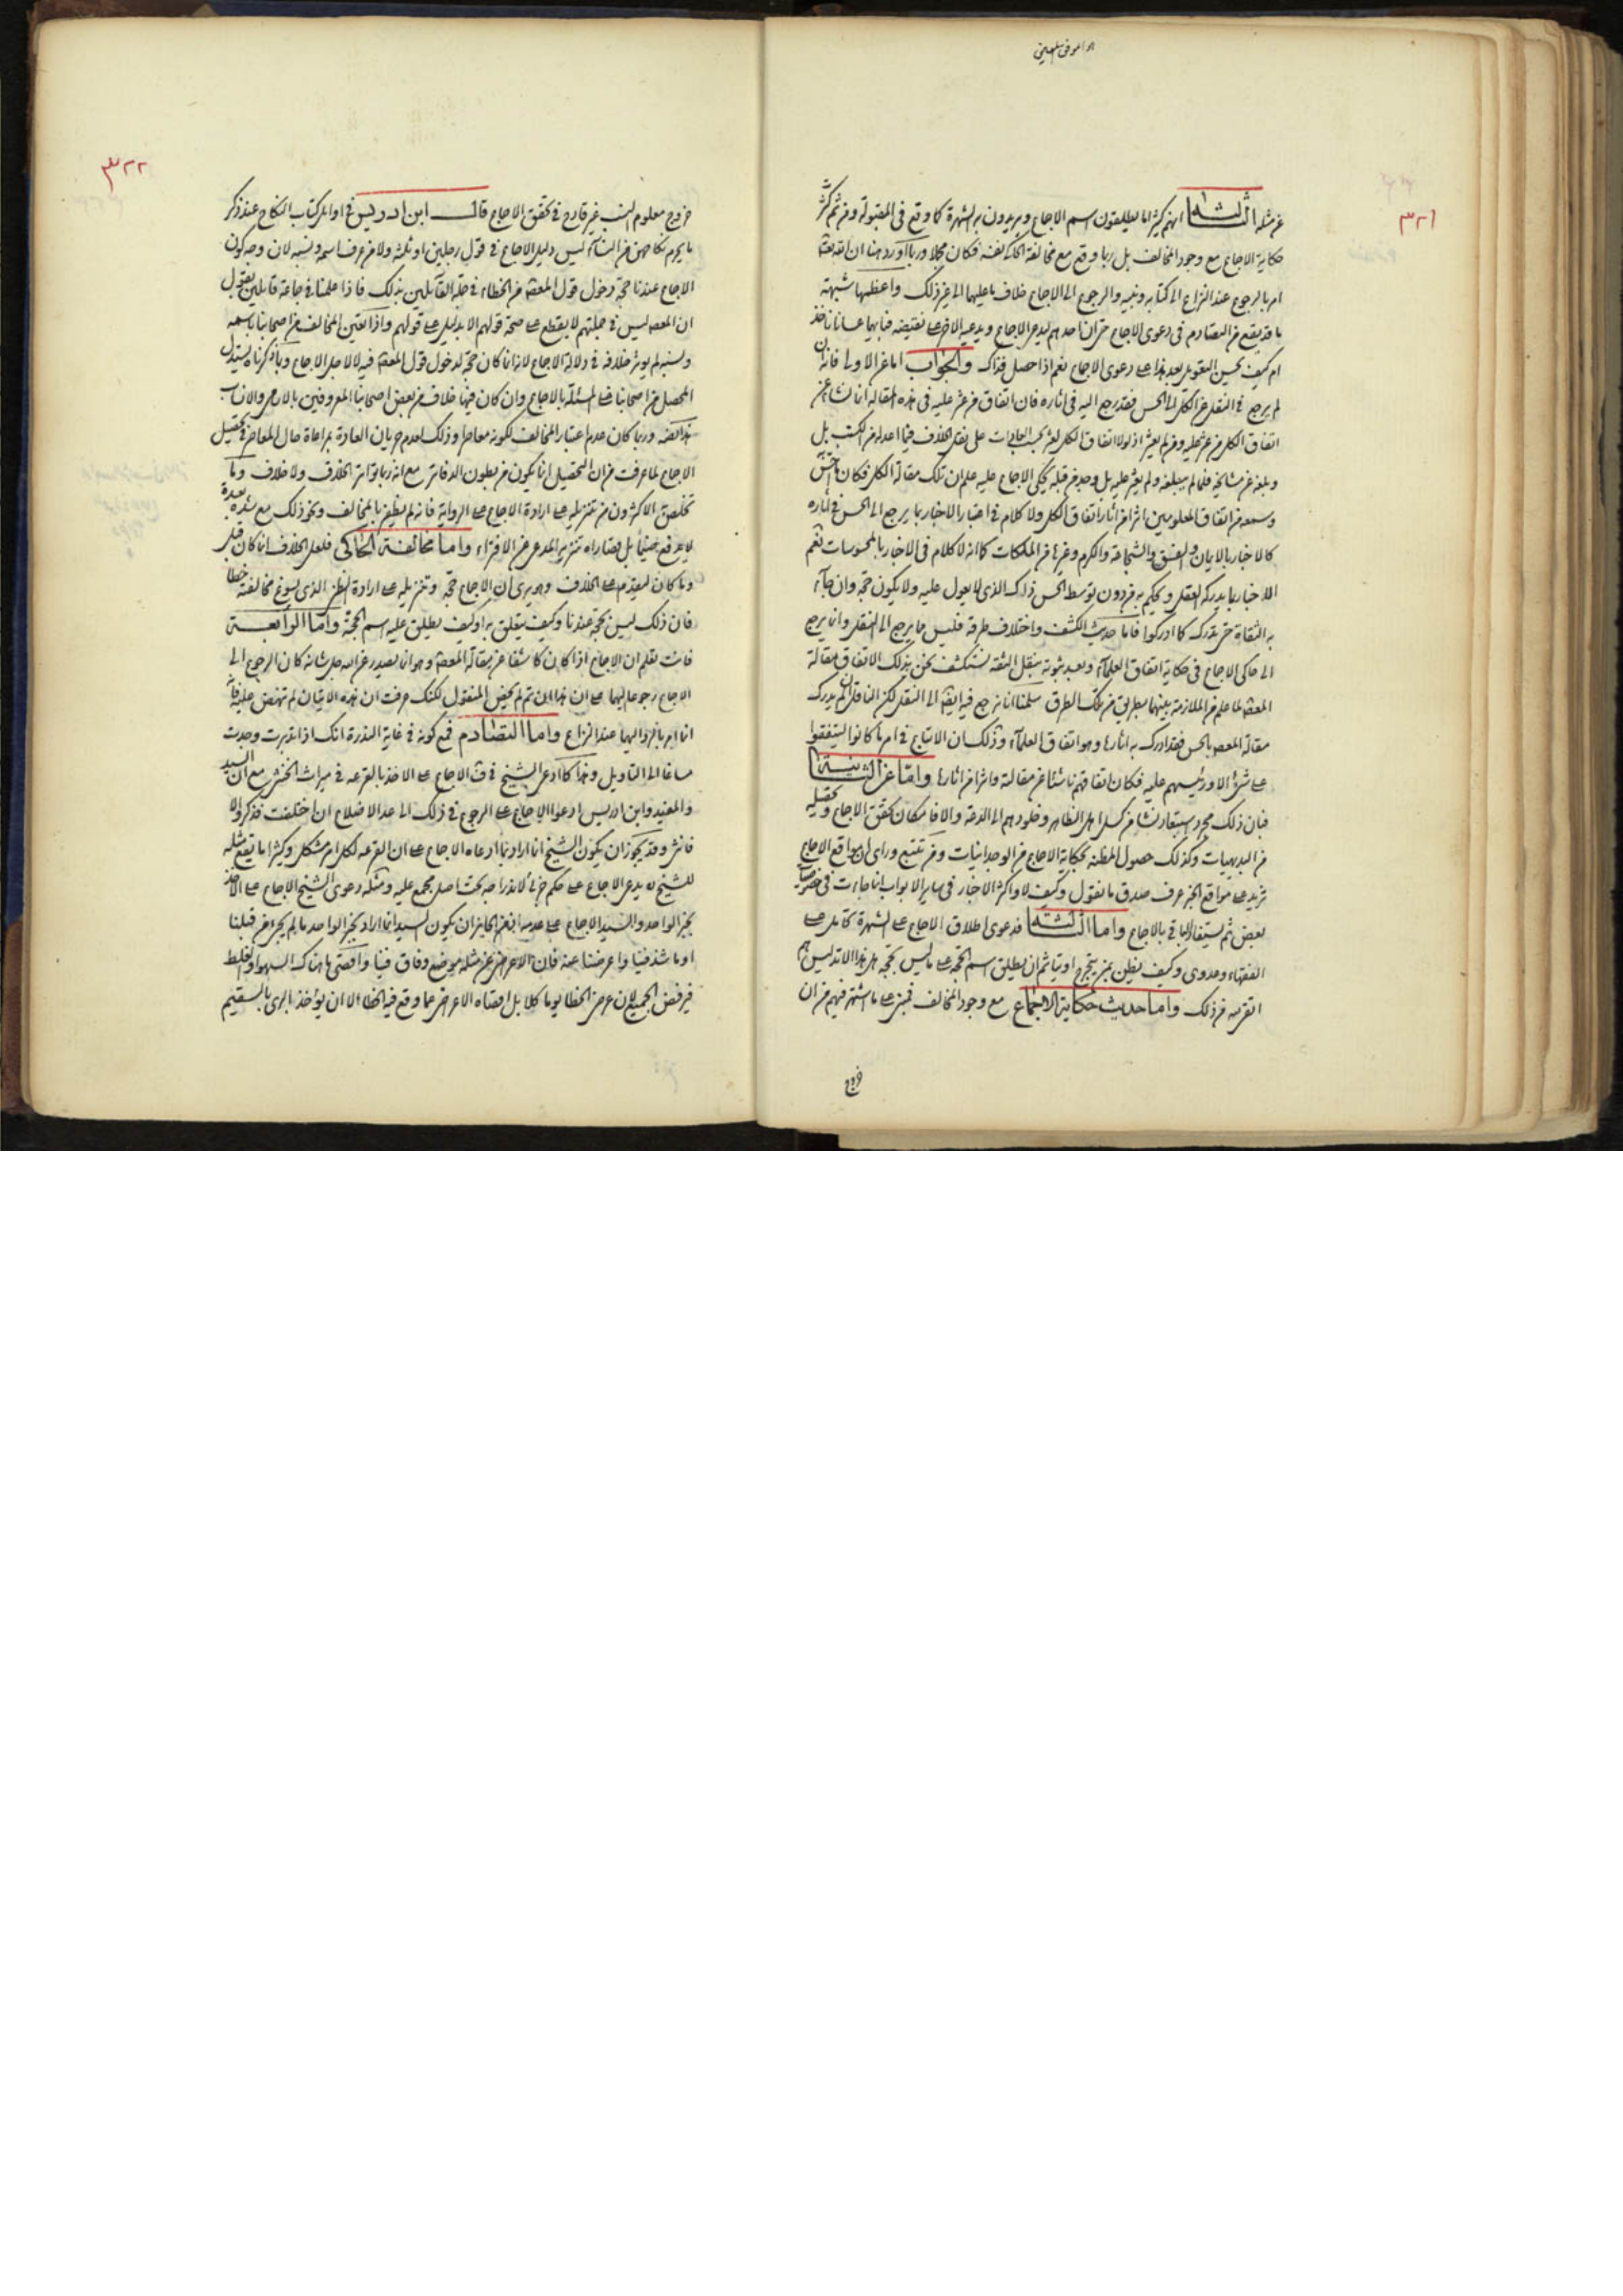 ٣٢١
عن مثله الثالثة انهم كثيرا ما يطلقون اسم الاجماع ويريدون به الشهرة كما وقع فى المقبولة ومن ثم كثر
حكاية الاجماع مع وجود المخالف بل ربما وقع مع مخالفة الحاكى نفسه فكان مجملا وربما اورد هنا ان الله تعالى
امر بالرجوع عند النزاع الى كتابه ونبيه والرجوع الى الاجماع خلاف ما عليهما الى غير ذلك واعظمها شبهة
ما قد يقع من التصادم فى دعوى الاجماع حتى ان احدهم ليدعى الاجماع ويدعى الاخر على نقيضه فبايهما عسانا ناخذ
ام كيف يحسن التعويل بعد هذا على دعوى الاجماع نعم اذا حصل فذاك والجواب اما عن الاولى فانه ان
لم يرجع فى النقل عن الكل الى الحس فقد رجع اليه فى اثاره فان اتفاق من عثر عليه فى هذه المقالة انما نشا عن
اتفاق الكل من عثر عليه ومن لم يعثر اذ لولا اتفاق الكل لعثر بحسب العادات على نقل الخلاف فيما اعد له من الكتب بل
وبلغه عن مشايخه فلما لم يبلغه ولم يعثر عليه بل وجد من قبله يحكى الاجماع عليه علم ان تلك مقالة الكل فكان
وسمعه من اتفاق المعلومين اثرا من اثار اتفاق الكل ولا كلام فى اعتبار الاخبار بما يرجع الى الحس فى اثاره
كالاخبار بالايمان والفسق والشجاعة والكرم وغيرها من الملكات كما انه لا كلام فى الاخبار بالمحسوسات نعم
الاخبار بما يدركه العقل ويحكم به من دون توسط الحس ذاك الذى لا يعول عليه ولا يكون حجة وان جاء
به الثقاة حتى تدرك كما ادركوا فاما حديث الكشف واختلاف طرقه فليس مما يرجع الى النقل وانما يرجع
الى حاكى الاجماع فى حكاية اتفاق العلماء وبعد ثبوته بنقل الثقة نستكشف نحن بذلك الاتفاق مقالة
المعصوم لما علم من الملازمة بينهما بطريق من تلك الطرق سلمنا انا نرجع فيه ايضا الى النقل لكن الناقل ان لم يدرك
مقالة المعصوم بالحس فقد ادرك به اثارها وهو اتفاق العلماء وذلك ان الاتباع فى امر ما كانوا ليتفقوا
على شئ الا ورئيسهم عليه فكان اتفاقهم ناشئا عن مقالته واثرا من اثارها واما عن الثانية
فبان ذلك مجرد استبعاد نشا من كسل اهل الظاهر وخلودهم الى الدعة والا فامكان تحقق الاجماع وتحصيله
من البديهيات وكذلك حصول المظنة بحكاية الاجماع من الوجدانيات ومن تتبع وراى ان مواقع الاجماع
تزيد على مواقع الخبر عرف صدق ما نقول وكيف لا واكثر الاخبار فى ساير الابواب انما جاءت فى خصوص
بعض ثم يستفاد الباقى بالاجماع واما الثالثة فدعوى اطلاق الاجماع على الشهرة تحامل على
الفقهاء وعدوى وكيف يظن بمن يتحرج او يتاثم ان يطلق اسم الحجة على ما ليس بحجة هل هذا الا تدليس
اتقرهم من ذلك واما حديث حكاية الاجماع مع وجود المخالف فمبنى على ما اشتهر فيهم من ان
خروج
٣٢٢
خروج معلوم النسب غير قادح فى تحقق الاجماع قال ابن ادريس فى اوايل كتاب النكاح عند ذكر
ما يحرم نكاحهن من النساء ليس دليل الاجماع فى قول رجلين او ثلثة ولا من عرف اسمه ونسبه لان وجه كون
الاجماع عندنا حجة دخول قول المعصوم من الخطاء فى جملة القائلين بذلك فاذا علمنا فى جماعة قائلين بقول
ان المعصوم ليس فى جملتهم لا يقطع على صحة قولهم الا بدليل على قولهم واذا تعين المخالف من اصحابنا باسمه
ونسبه لم يؤثر خلافه فى دلالة الاجماع لانه انما كان حجة لدخول قول المعصوم فيه لا لاجل الاجماع وبما ذكرناه يستدل
المحصل من اصحابنا على المسئلة بالاجماع وان كان فيها خلاف من بعض اصحابنا المعروفين بالاسامى والانساب
وربما كان عدم اعتبار المخالف لكونه معاصرا وذلك لعدم جريان العادة بمراعاة حال المعاصر فى تحصيل
الاجماع لما عرفت من ان التحصيل انما يكون من بطون الدفاتر مع انه ربما تواتر الخلاف ولا خلاف وما
تخلص به الاكثرون من تنزيله على ارادة الاجماع على الرواية فانه لم يظفر بالمخالف ونحو ذلك مع شدة بعده
لا يدفع ضيما بل قصاراه تنزيه المدعى عن الافتراء واما مخالفة الحاكى فلعل الخلاف انما كان قبل
وما كان ليقدم على الخلاف وهو يرى ان الاجماع حجة وتنزيله على ارادة الظن الذى يسوغ مخالفته خطا
فان ذلك ليس بحجة عندنا وكيف يتعلق به او كيف يطلق عليه اسم الحجة واما الرابعة
فانت تعلم ان الاجماع اذا كان كاشفا عن مقالة المعصوم وهو انما يصدر عن الله جل شانه كان الرجوع الى
الاجماع رجوعا اليهما على ان هذا ان تم لم يخص المنقول لكنك عرفت ان هذه الايتان لم تنهض
انما امر بالرد اليهما عند النزاع واما التصادم فمع كونه فى غاية الندرة انك اذا تدبرت وجدت
مساغا الى التاويل وهذا كما ادعى الشيخ فى ف الاجماع على الاخذ بالقرعة فى ميراث الخنثى مع ان السيد
والمفيد وابن ادريس ادعوا الاجماع على الرجوع فى ذلك الى عد الاضلاع ان اختلفت فذكر والا
فانثى وقد يجوز ان يكون الشيخ انما اراد بما ادعاه الاجماع على ان القرعة لكل امر مشكل وكثيرا ما يقع مثله
للشيخ يدعى الاجماع على حكم جزئى لاندراجه تحت اصل مجمع عليه ومثله دعوى الشيخ الاجماع على الاخذ
بخبر الواحد والسيد الاجماع على عدمه اذ من الجايز ان يكون السيد انما اراد بخبر الواحد ما لم يجئ من قبلنا
او ما شذ فينا واعرضنا عنه فان الاعراض عن مثله موضع وفاق فينا واقصى ما هناك السهو او الغلط
فيرفض الجميع لان عرض الخطا يوما كلا بل اقصاه الاعراض عما وقع فيه الخطا الا ان يؤخذ البرى بالسقيم